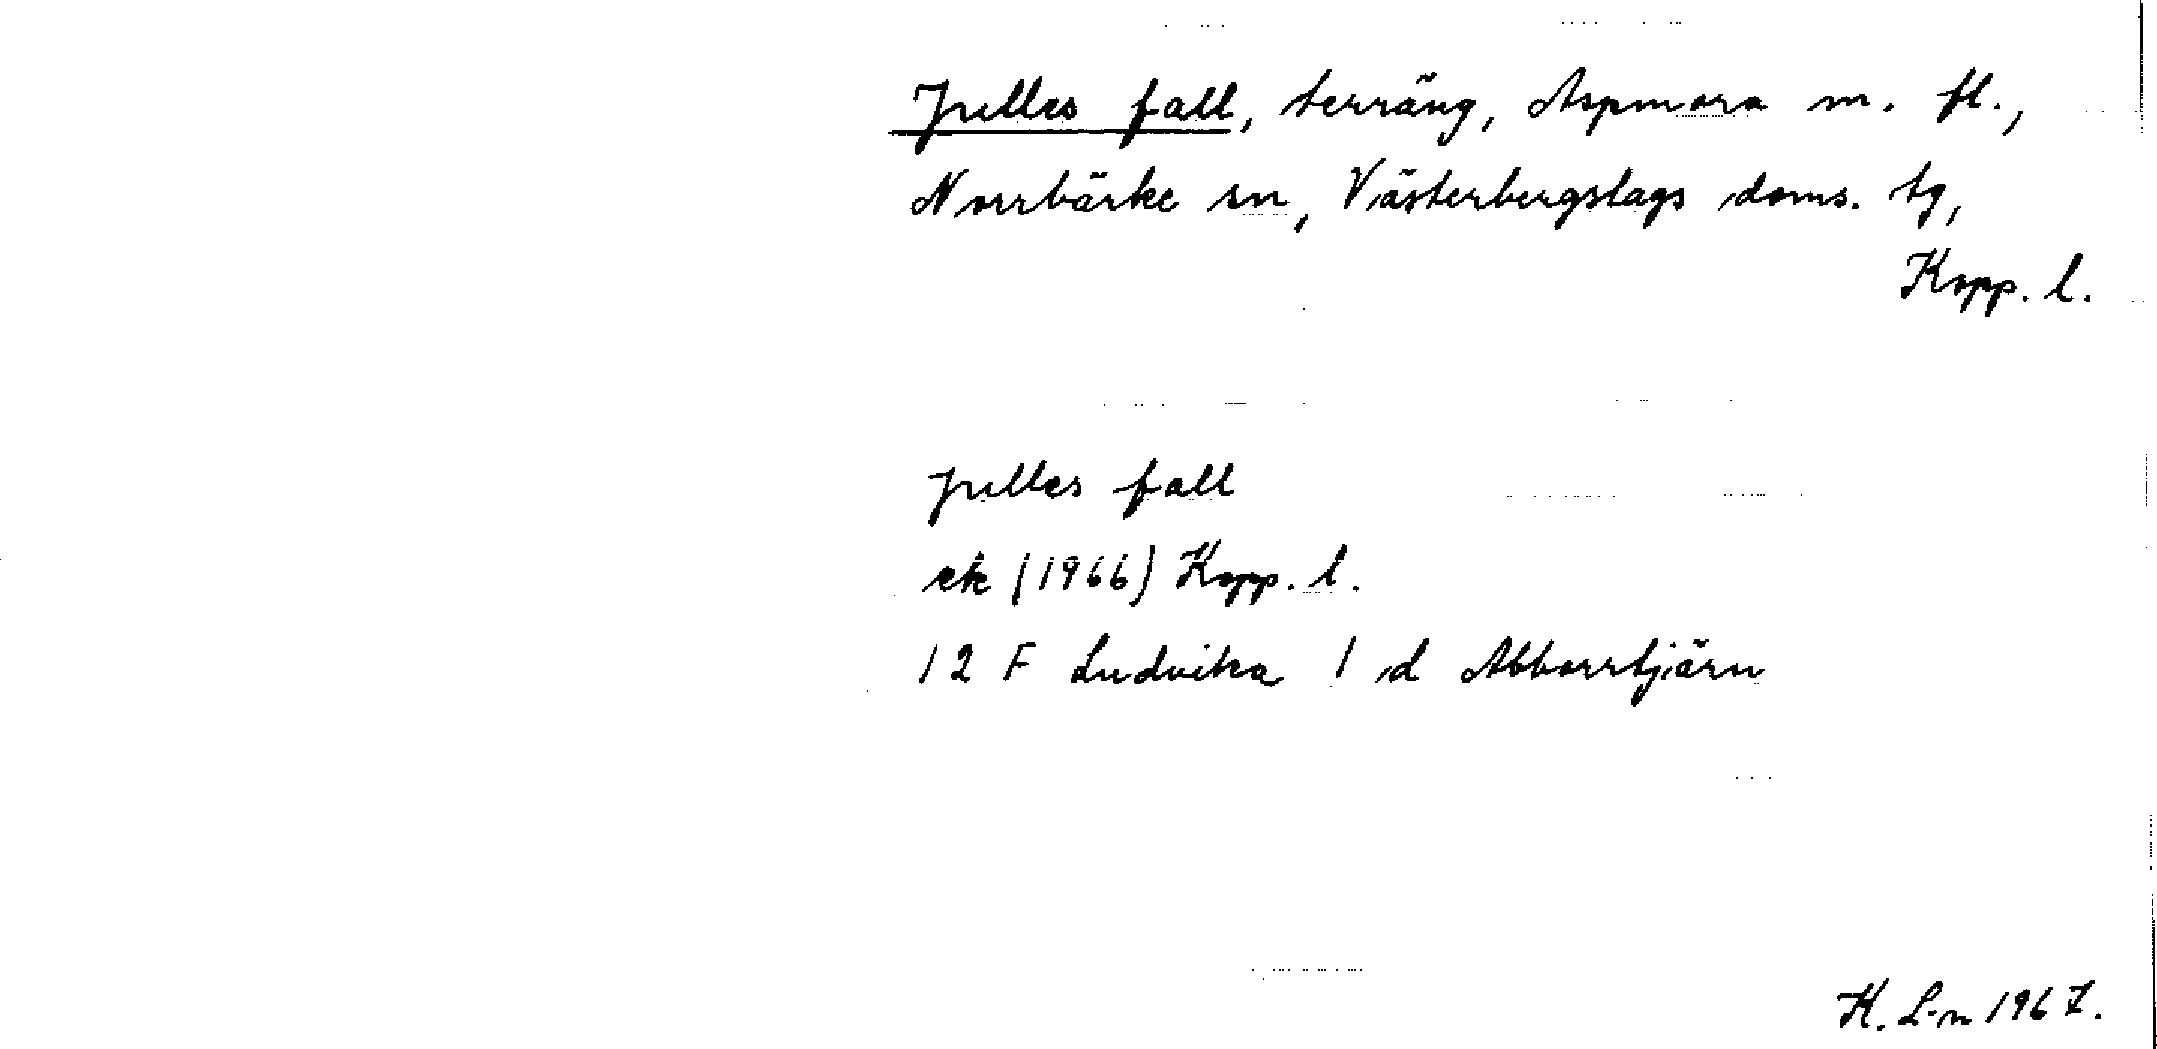 Julles fall, terräng, Aspmora m. fl.,
Norrbärke sn, Västerbergslags doms. tg,
Kopp. l.
Julles fall
ek (1966) Kopp. l.
12 F Ludvika 1 d Abborrtjärn
H. L-n 1967.